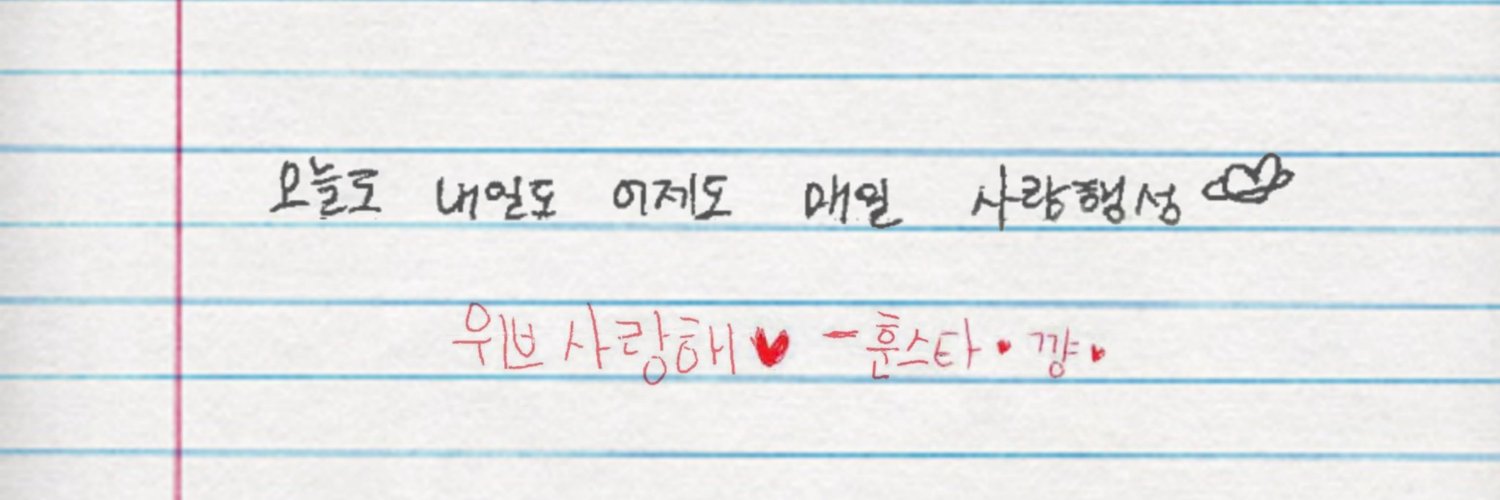 오늘도 내일도 어제도 매일 사랑행성
위브 사랑해♥ -훈스타·꺙♥